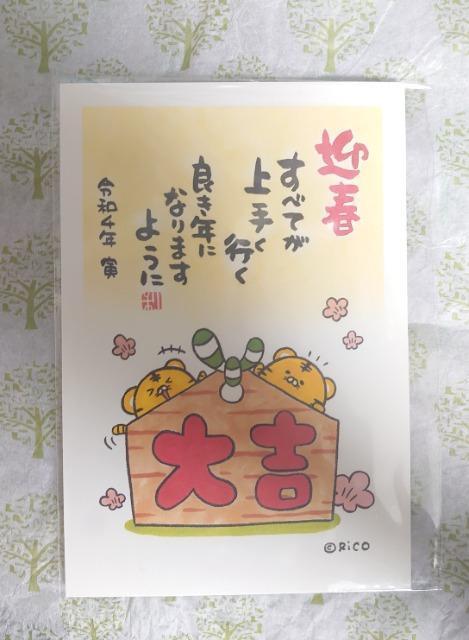 迎春
すべてが
上手く行く
良き年に
なります
ように
令和4年 寅
大吉
©RiCO